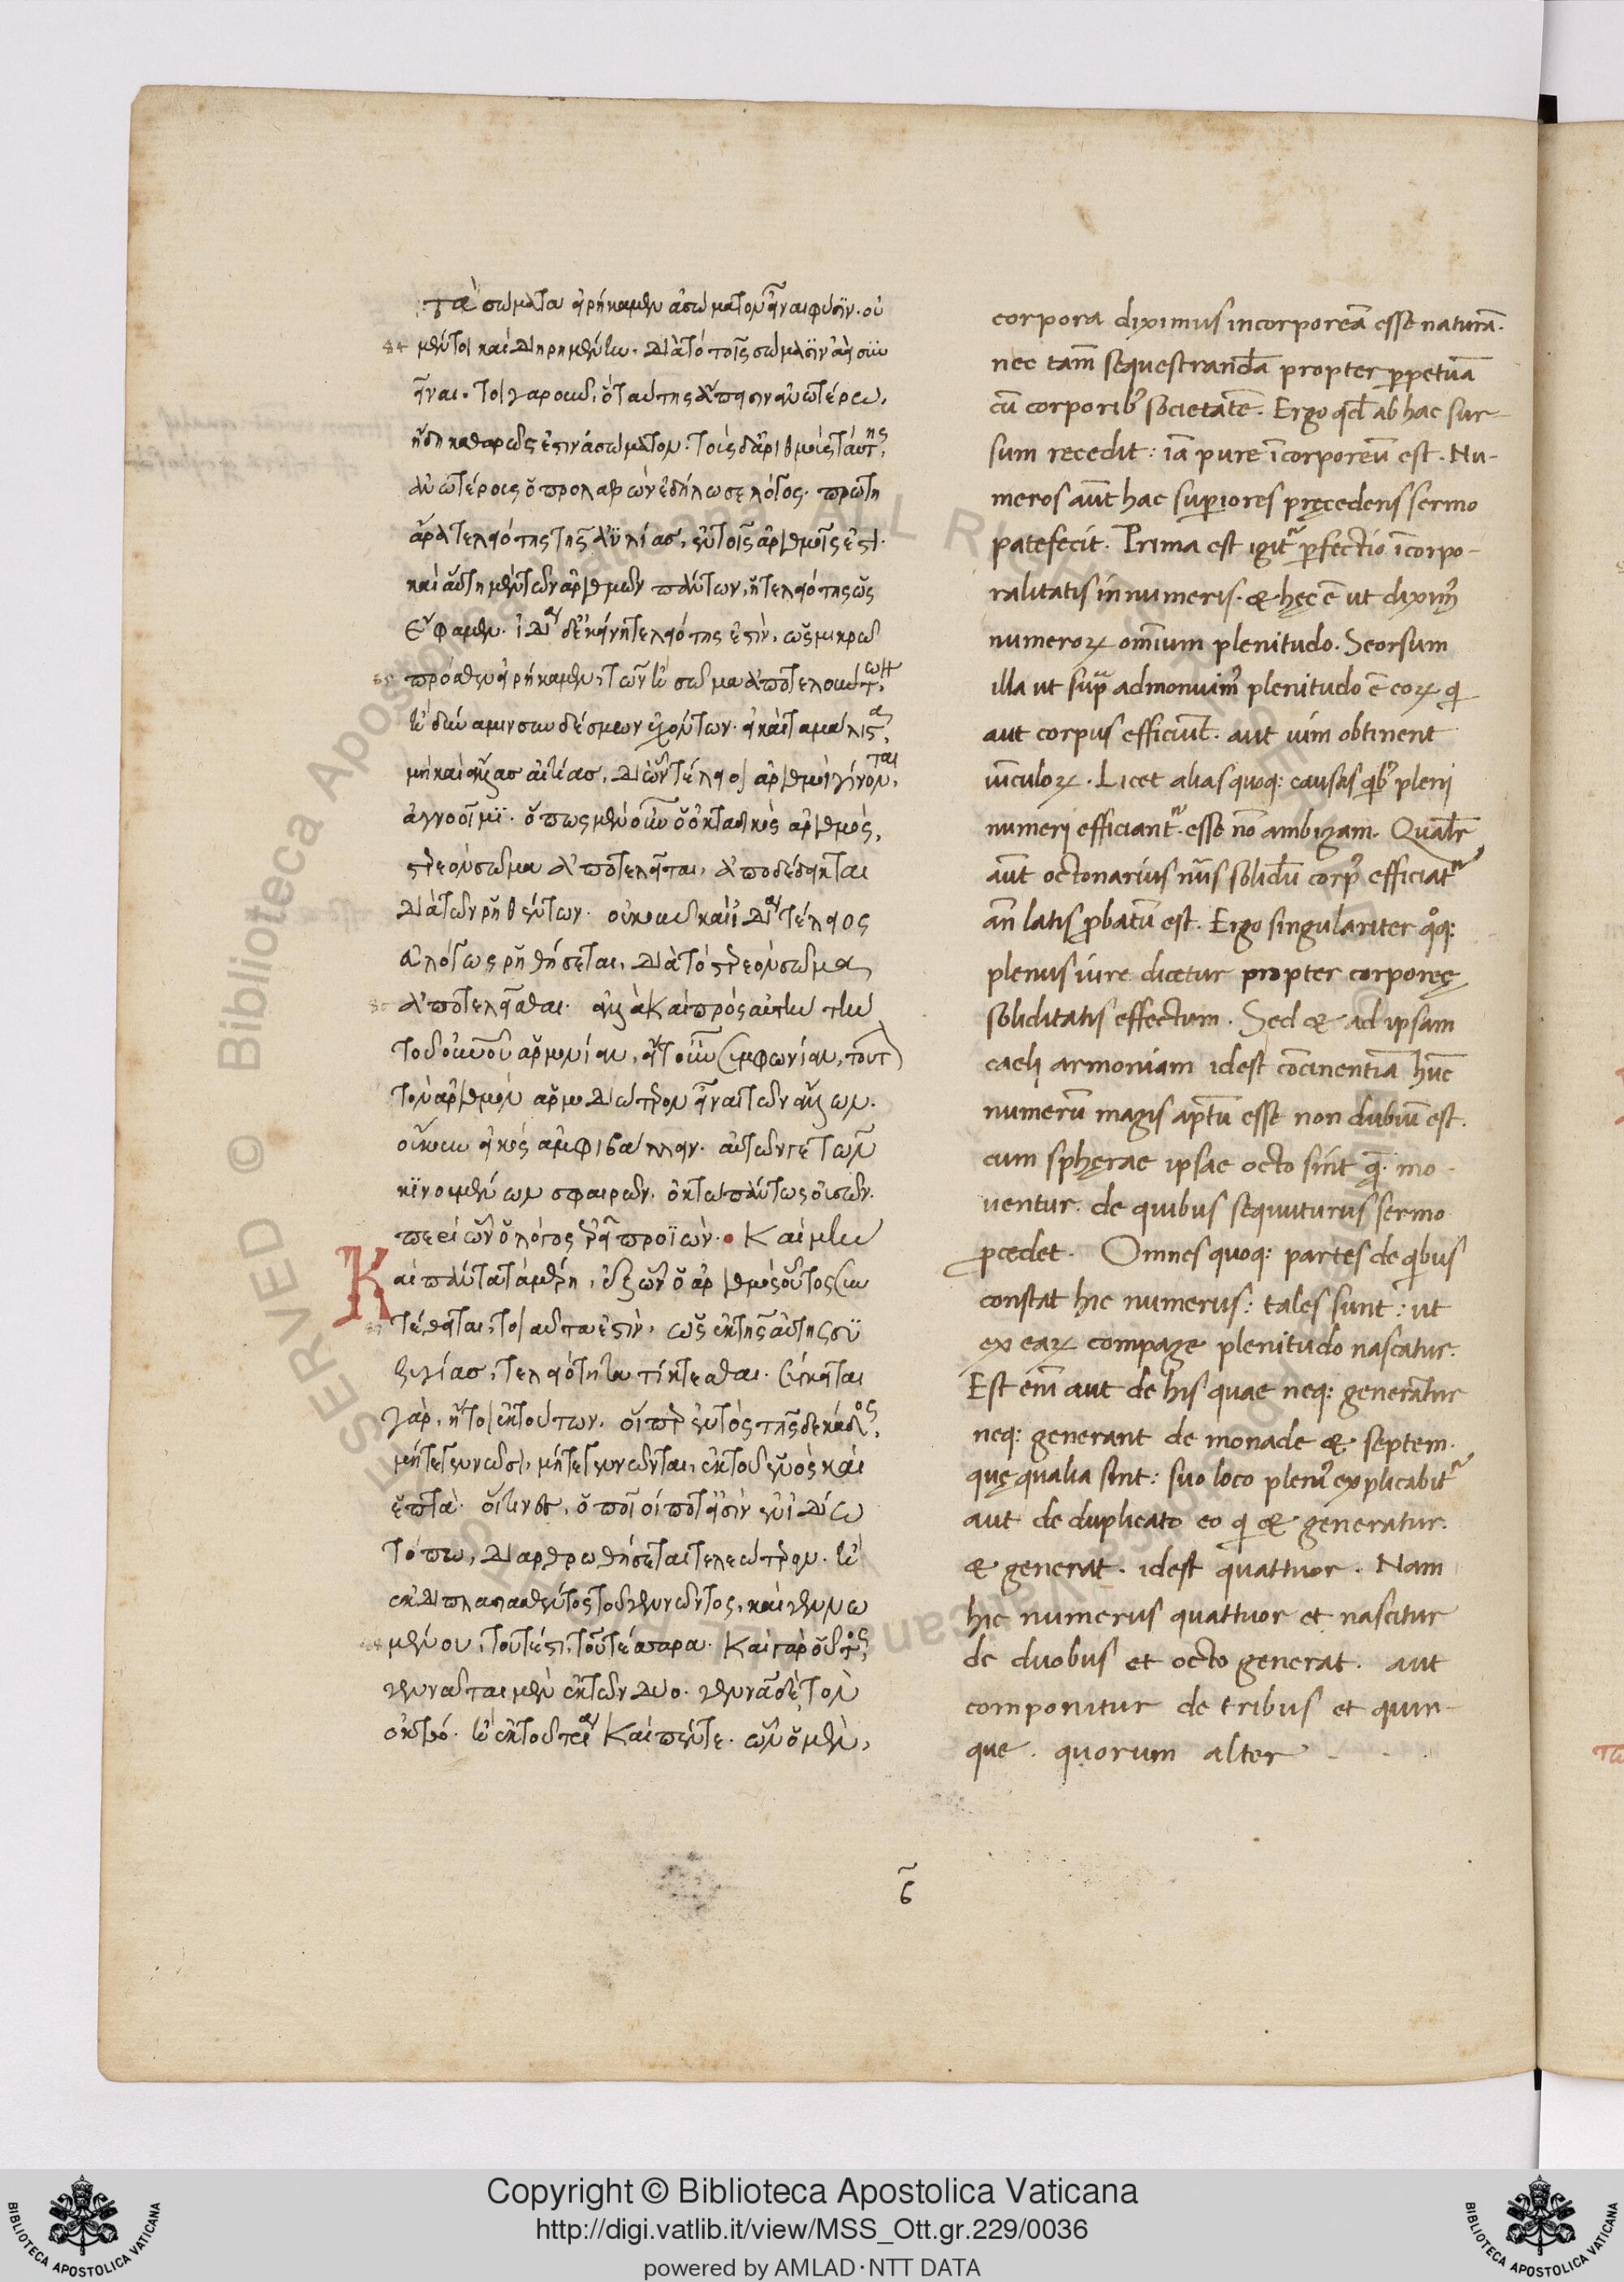 τὰ σώματα εἰρήκαμεν ἀσώματον εἶναι φύσιν. οὐ
μέντοι καὶ διῃρημένην. διὰ τὸ τοῖς σώμασιν ἀεὶ συν
εἶναι. τοιγαροῦν, ὅ ταύτης ἄπεισιν ἀνωτέρω,
ἤδη καθαρῶς ἐστὶν ἀσώματον. τοὺς δ' ἀριθμοὺς ταύτης
ἀνωτέρους ὁ προλαβὼν ἐδήλωσε λόγος. πρώτη
ἄρα τελειότης τῆς ἀϋλίας, ἐν τοῖς ἀριθμοῖς ἐστί.
καὶ αὕτη μὲν τῶν ἀριθμῶν πάντων, ἡ τελειότης ὡς
ἔφαμεν. ἰδίᾳ δὲ κείνη τελειότης ἐστὶν, ὡς μικρῶ
πρόσθεν εἰρήκαμεν, τῶν ἢ σῶμα ἀποτελούντων,
ἢ δύναμιν συνδέσμων ἐχόντων. εἰ καὶ τὰ μάλιστα
μὴ καὶ ἄλλας αἰτίας, δι' ὧν τέλειοι ἀριθμοὶ γίνονται,
ἀγνοοῖμι. ὅπως μὲν οὖν ὁ ὀκταδικὸς ἀριθμὸς,
στερεὸν σῶμα ἀποτελεῖται, ἀποδέδεικται
διὰ τῶν ῥηθέντων. οὐκοῦν καὶ ἰδίᾳ τέλειος
εὐλόγως ῥηθήσεται, διὰ τὸ στερεὸν σῶμα
ἀποτελεῖσθαι. ἀλλὰ καὶ πρὸς αὐτὴν τὴν
τοῦ οὐρανοῦ ἁρμονίαν, εἴτουν συμφωνίαν, τοῦτον
τὸν ἀριθμὸν ἁρμοδιώτερον εἶναι τῶν ἄλλων.
οὔκουν εἰκὸς ἀμφιβάλλειν. αὐτῶν γε τῶν
κινουμένων σφαιρῶν, ὀκτὼ πάντως οὐσῶν.
περὶ ὧν ὁ λόγος ἐρεῖ προϊών. Καὶ μὴν
Καὶ πάντα τὰ μέρη, ἐξ ὧν ὁ ἀριθμὸς οὗτος συν
τέθειται, τοιαῦτα ἐστὶν, ὡς ἐκ τῆς αὐτῆς συ
ζυγίας, τελειότητα τίκτεσθαι. σύγκειται
γὰρ, ἤτοι ἐκ τούτων, οἵπερ ἐντὸς τῆς δεκάδος,
μήτε γεννῶσι, μήτε γεννῶνται, ἐκ τοῦ ἑνὸς καὶ
ἑπτά. οἵτινες, ὁποῖοί ποτ' εἰσὶν ἐν ἰδίῳ
τόπῳ, διαρθρωθήσεται τελεώτερον. ἢ
ἐκ διπλασιασθέντος τοῦ γεννῶντος, καὶ γεννω
μένου, τουτέστι, τοῦ τέσσαρα. Καὶ γὰρ οὗτος
γεννᾶται μὲν ἐκ τῶν δύο. γεννᾷ δὲ τὸν
ὀκτώ. ἢ ἐκ τοῦ τρία καὶ πέντε. ὧν ὁ μὲν,
corpora diximus incorporeã esse naturã.
nec tam̃ sequestrandã propter ꝑpetuã
cũ corporibꝰ societatẽ. Ergo qd̃ ab hac sur-
sum recedit: iã pure ĩcorporeũ est. Nu-
meros aũt hac suꝑiores pręcedens sermo
patefecit. Prima est igit᷑ ꝑfectio ĩcorpo-
ralitatis in numeris. & hęc ẽ ut diximꝰ
numeroꝝ omĩum plenitudo. Seorsum
illa ut sup̃ admonuimꝰ plenitudo ẽ eoꝝ qi
aut corpus efficiũt. aut uim obtinent
uĩculoꝝ. Licet alias quoq: causas qibꝰ pleni
numeri efficiant᷑. esse nõ ambigam. Qualr̃
aũt octonarius nũs solidũ corpꝰ efficiat᷑
añ latis ꝓbatũ est. Ergo singulariter qoq:
plenus iure dicetur propter corporeę
soliditatis effectum. Sed & ad ipsam
caeli armoniam idest cõcinentiã hũc
numerũ magis aptũ esse non dubiũ est.
cum sphęrae ipsae octo sint quę mo-
uentur. de quibus sequuturus sermo
ꝓcedet. Omnes quoq: partes de qibus
constat hic numerus: tales sunt: ut
ex eaꝝ compage plenitudo nascatur.
Est em̃ aut de his quae neq: generãtur
neq: generant de monade & septem.
quę qualia sint: suo loco pleniꝰ explicabit᷑
aut de duplicato eo qi & generatur.
& generat. idest quattuor. Nam
hic numerus quattuor et nascitur
de duobus et octo generat. aut
componitur de tribus et quin-
que. quorum alter
Copyright © Biblioteca Apostolica Vaticana
http://digi.vatlib.it/view/MSS_Ott.gr.229/0036
powered by AMLAD·NTT DATA